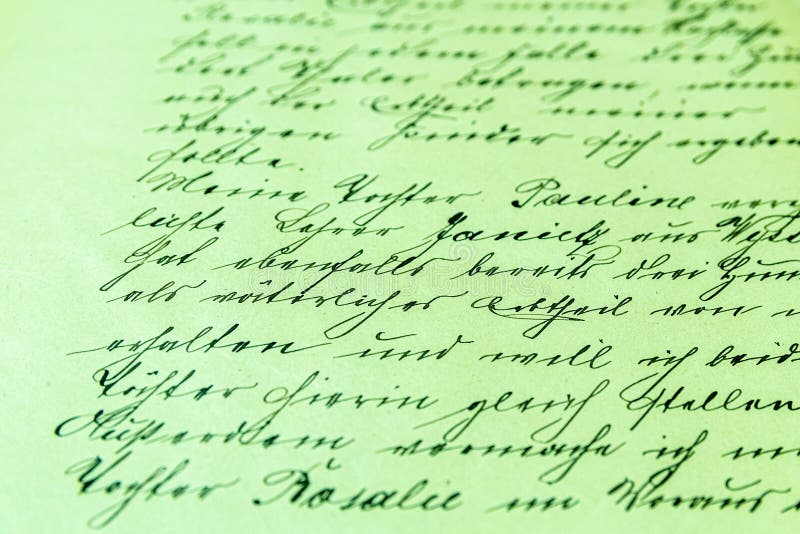 Erbtheil meiner
Rosalie aus meinem Nachlasse
soll in dem Falle drei Hun
dert Thaler betragen, wenn
auch der Erbtheil meiner
übrigen Kinder sich ergeben
sollte.
Meine Tochter Pauline vere
lichte Lehrer Janietz aus
hat ebenfalls bereits drei Hun
als väterliches Erbtheil von
erhalten und will ich beid
Töchter hierin gleich stellen
Außerdem vermache ich
Tochter Rosalie im Voraus